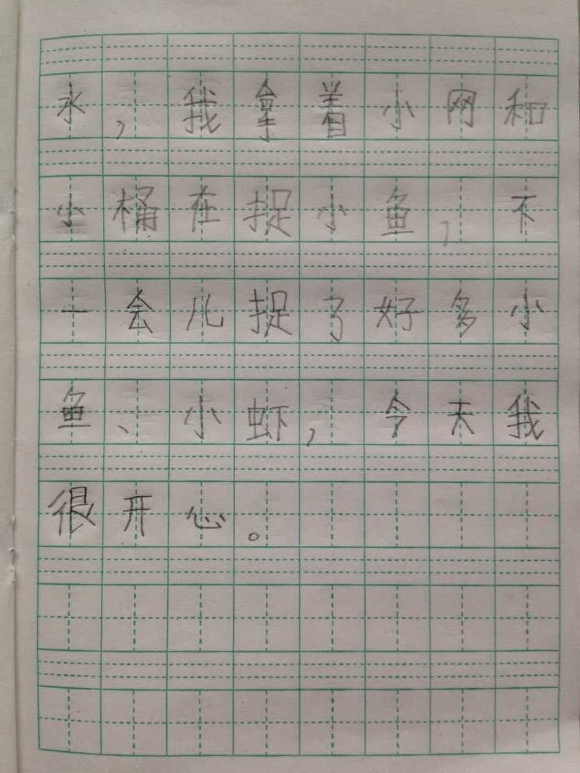 水，我拿着小网和
小桶在捉小鱼，不
一会儿捉了好多小
鱼、小虾，今天我
很开心。